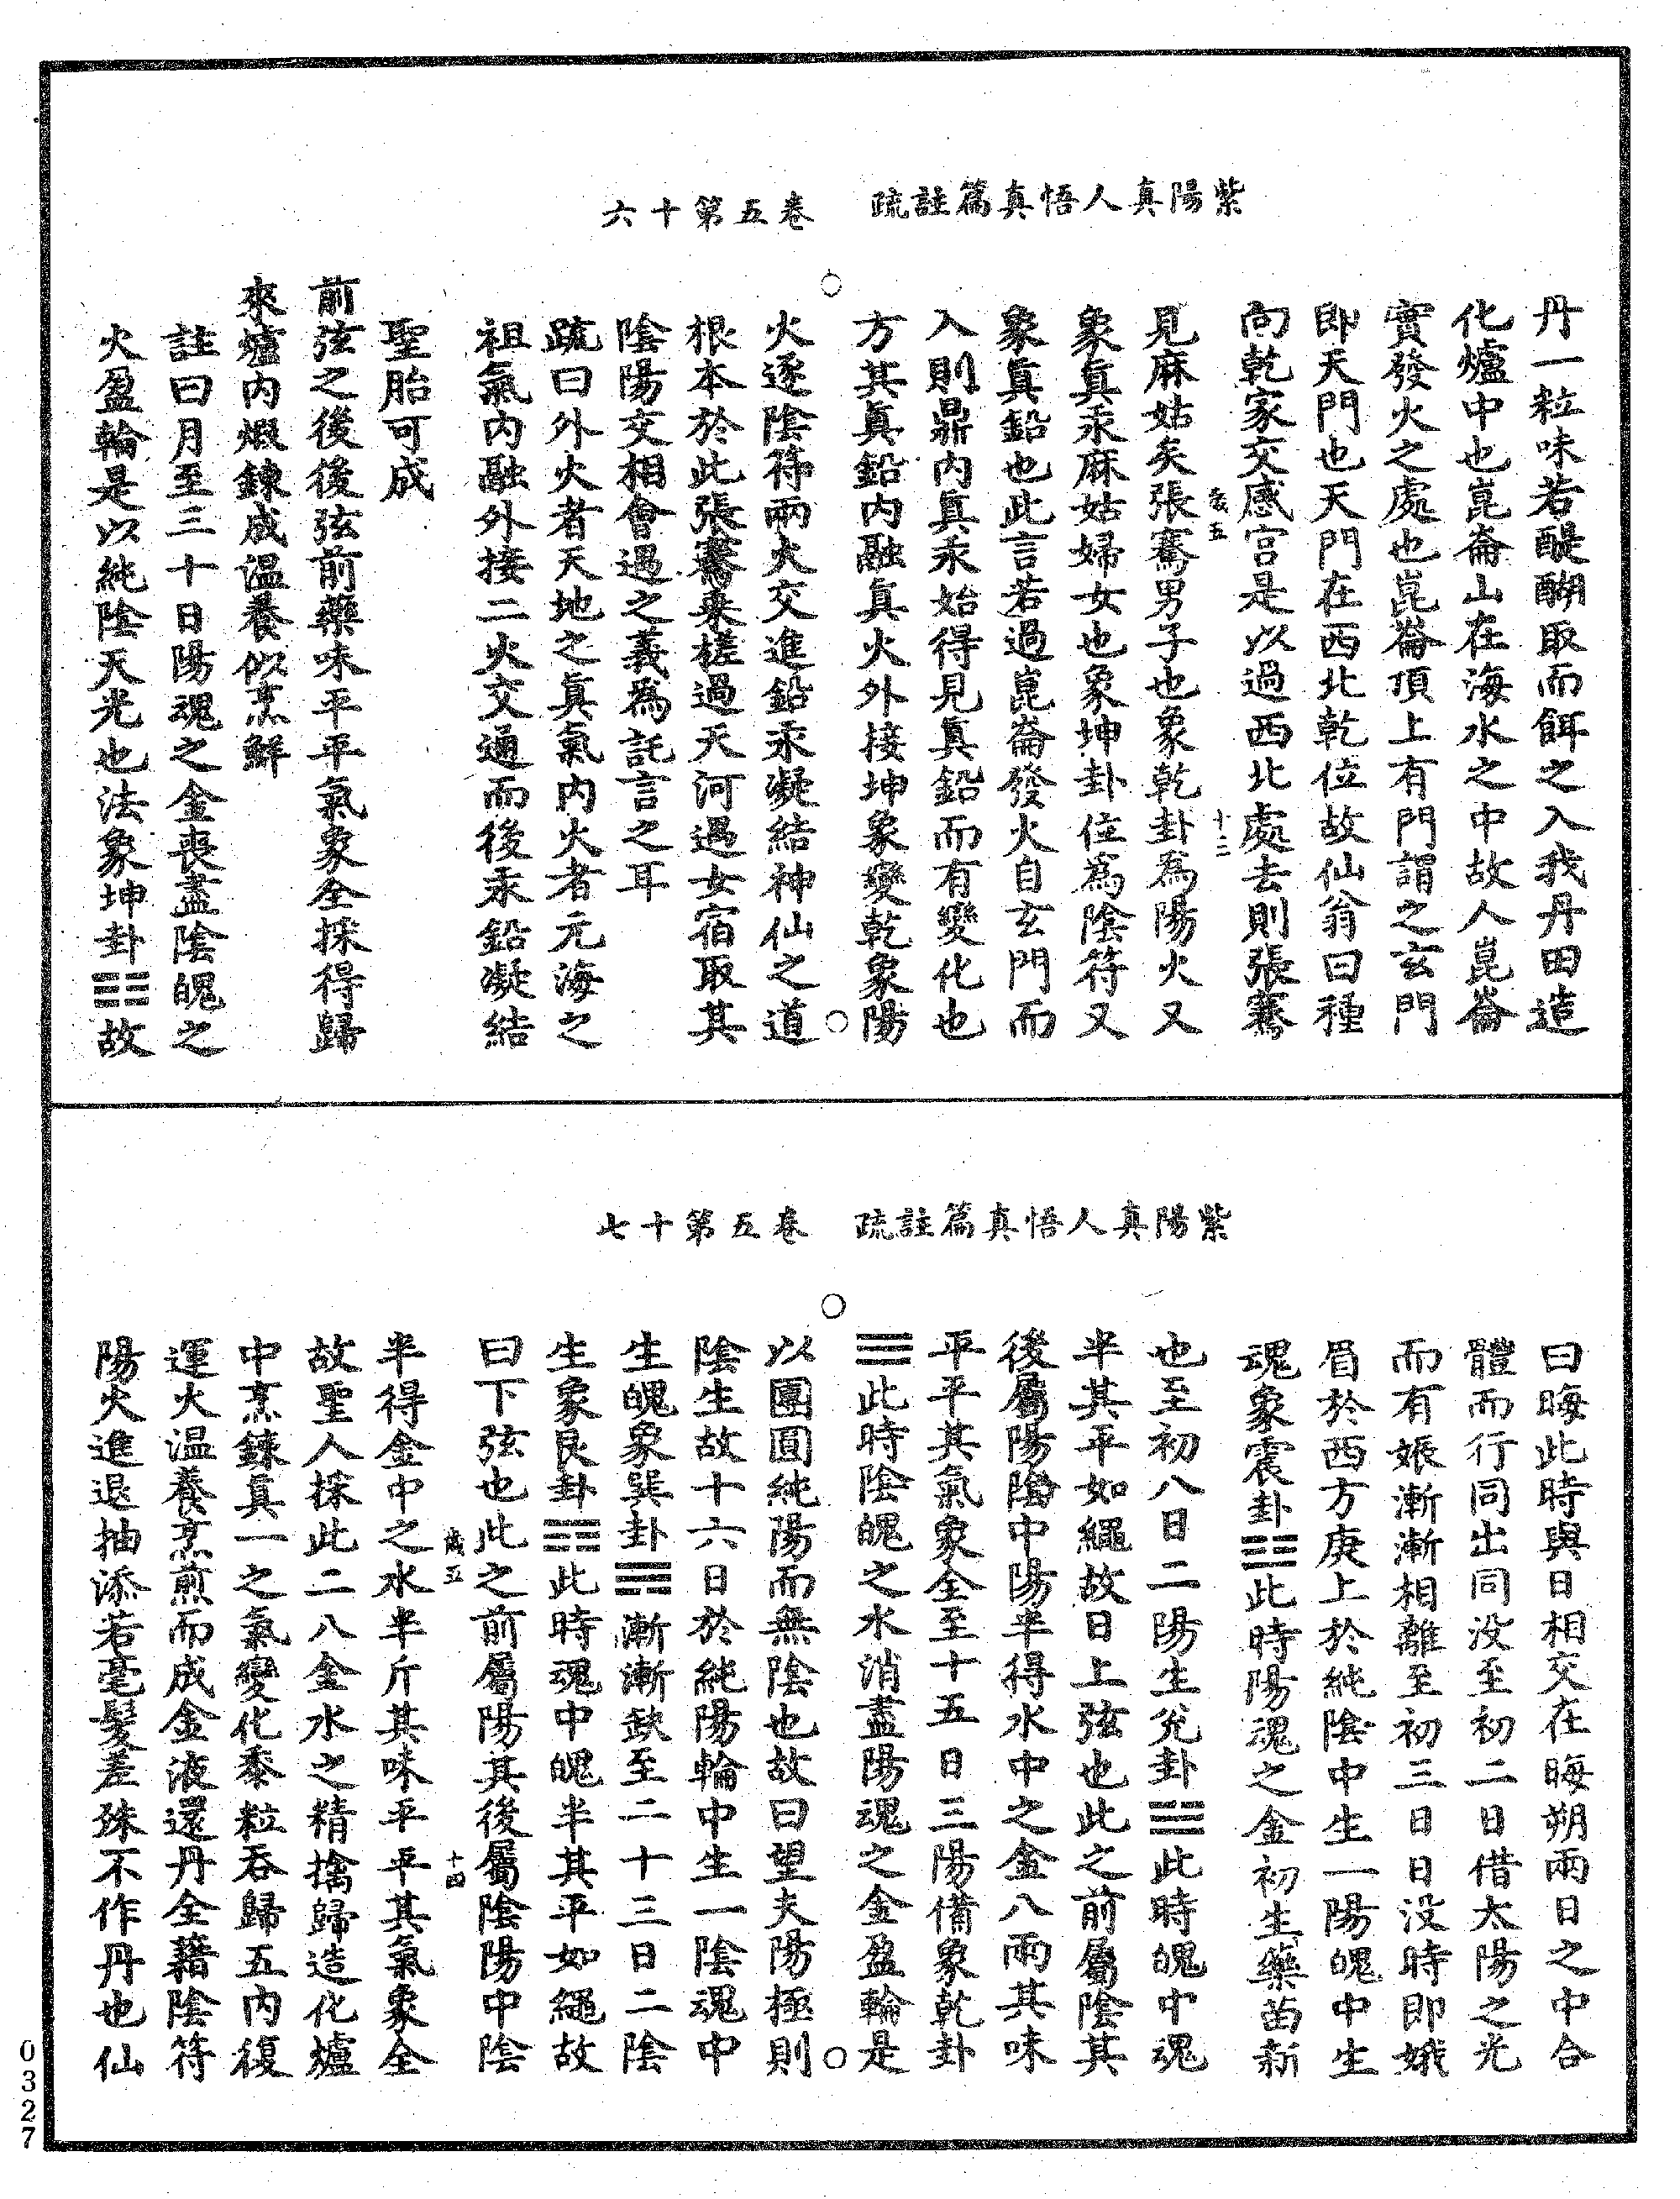 紫陽真人悟真篇註疏　卷五第十六
丹一粒味若醍醐取而餌之入我丹田造
化爐中也崑崙山在海水之中故人崑崙
實發火之處也崑崙頂上有門謂之玄門
即天門也天門在西北乾位故仙翁曰種
向乾家交感宮是以過西北處去則張騫
歲五　十三
見麻姑矣張騫男子也象乾卦為陽火又
象真汞麻姑婦女也象坤卦位為陰符又
象真鉛也此言若過崑崙發火自玄門而
入則鼎內真汞始得見真鉛而有變化也
方其真鉛內融真火外接坤象變乾象陽
火逐陰符兩火交進鉛汞凝結神仙之道
根本於此張騫乘槎過天河過女宿取其
陰陽交相會遇之義為託言之耳
疏曰外火者天地之真氣內火者元海之
祖氣內融外接二火交通而後汞鉛凝結
聖胎可成
前弦之後後弦前藥味平平氣象全採得歸
來爐內煅鍊成溫養似烹鮮
註曰月至三十日陽魂之金喪盡陰魄之
火盈輪是以純陰天光也法象坤卦☷故
紫陽真人悟真篇註疏　卷五第十七
曰晦此時與日相交在晦朔兩日之中合
體而行同出同没至初二日借太陽之光
而有娠漸漸相離至初三日日没時即娥
眉於西方庚上於純陰中生一陽魄中生
魂象震卦☳此時陽魂之金初生藥苗新
也至初八日二陽生兊卦☱此時魄中魂
半其平如繩故日上弦也此之前屬陰其
後屬陽陰中陽半得水中之金八兩其味
平平其氣象全至十五日三陽備象乾卦
☰此時陰魄之水消盡陽魂之金盈輪是
以團圓純陽而無陰也故曰望夫陽極則
陰生故十六日於純陽輪中生一陰魂中
生魄象巽卦☴漸漸缺至二十三日二陰
生象艮卦☶此時魂中魄半其平如繩故
曰下弦也此之前屬陽其後屬陰陽中陰
歲五　十四
半得金中之水半斤其味平平其氣象全
故聖人採此二八金水之精擒歸造化爐
中烹鍊真一之氣變化黍粒吞歸五內復
運火溫養烹煎而成金液還丹全藉陰符
陽火進退抽添若毫髮差殊不作丹也仙
0327